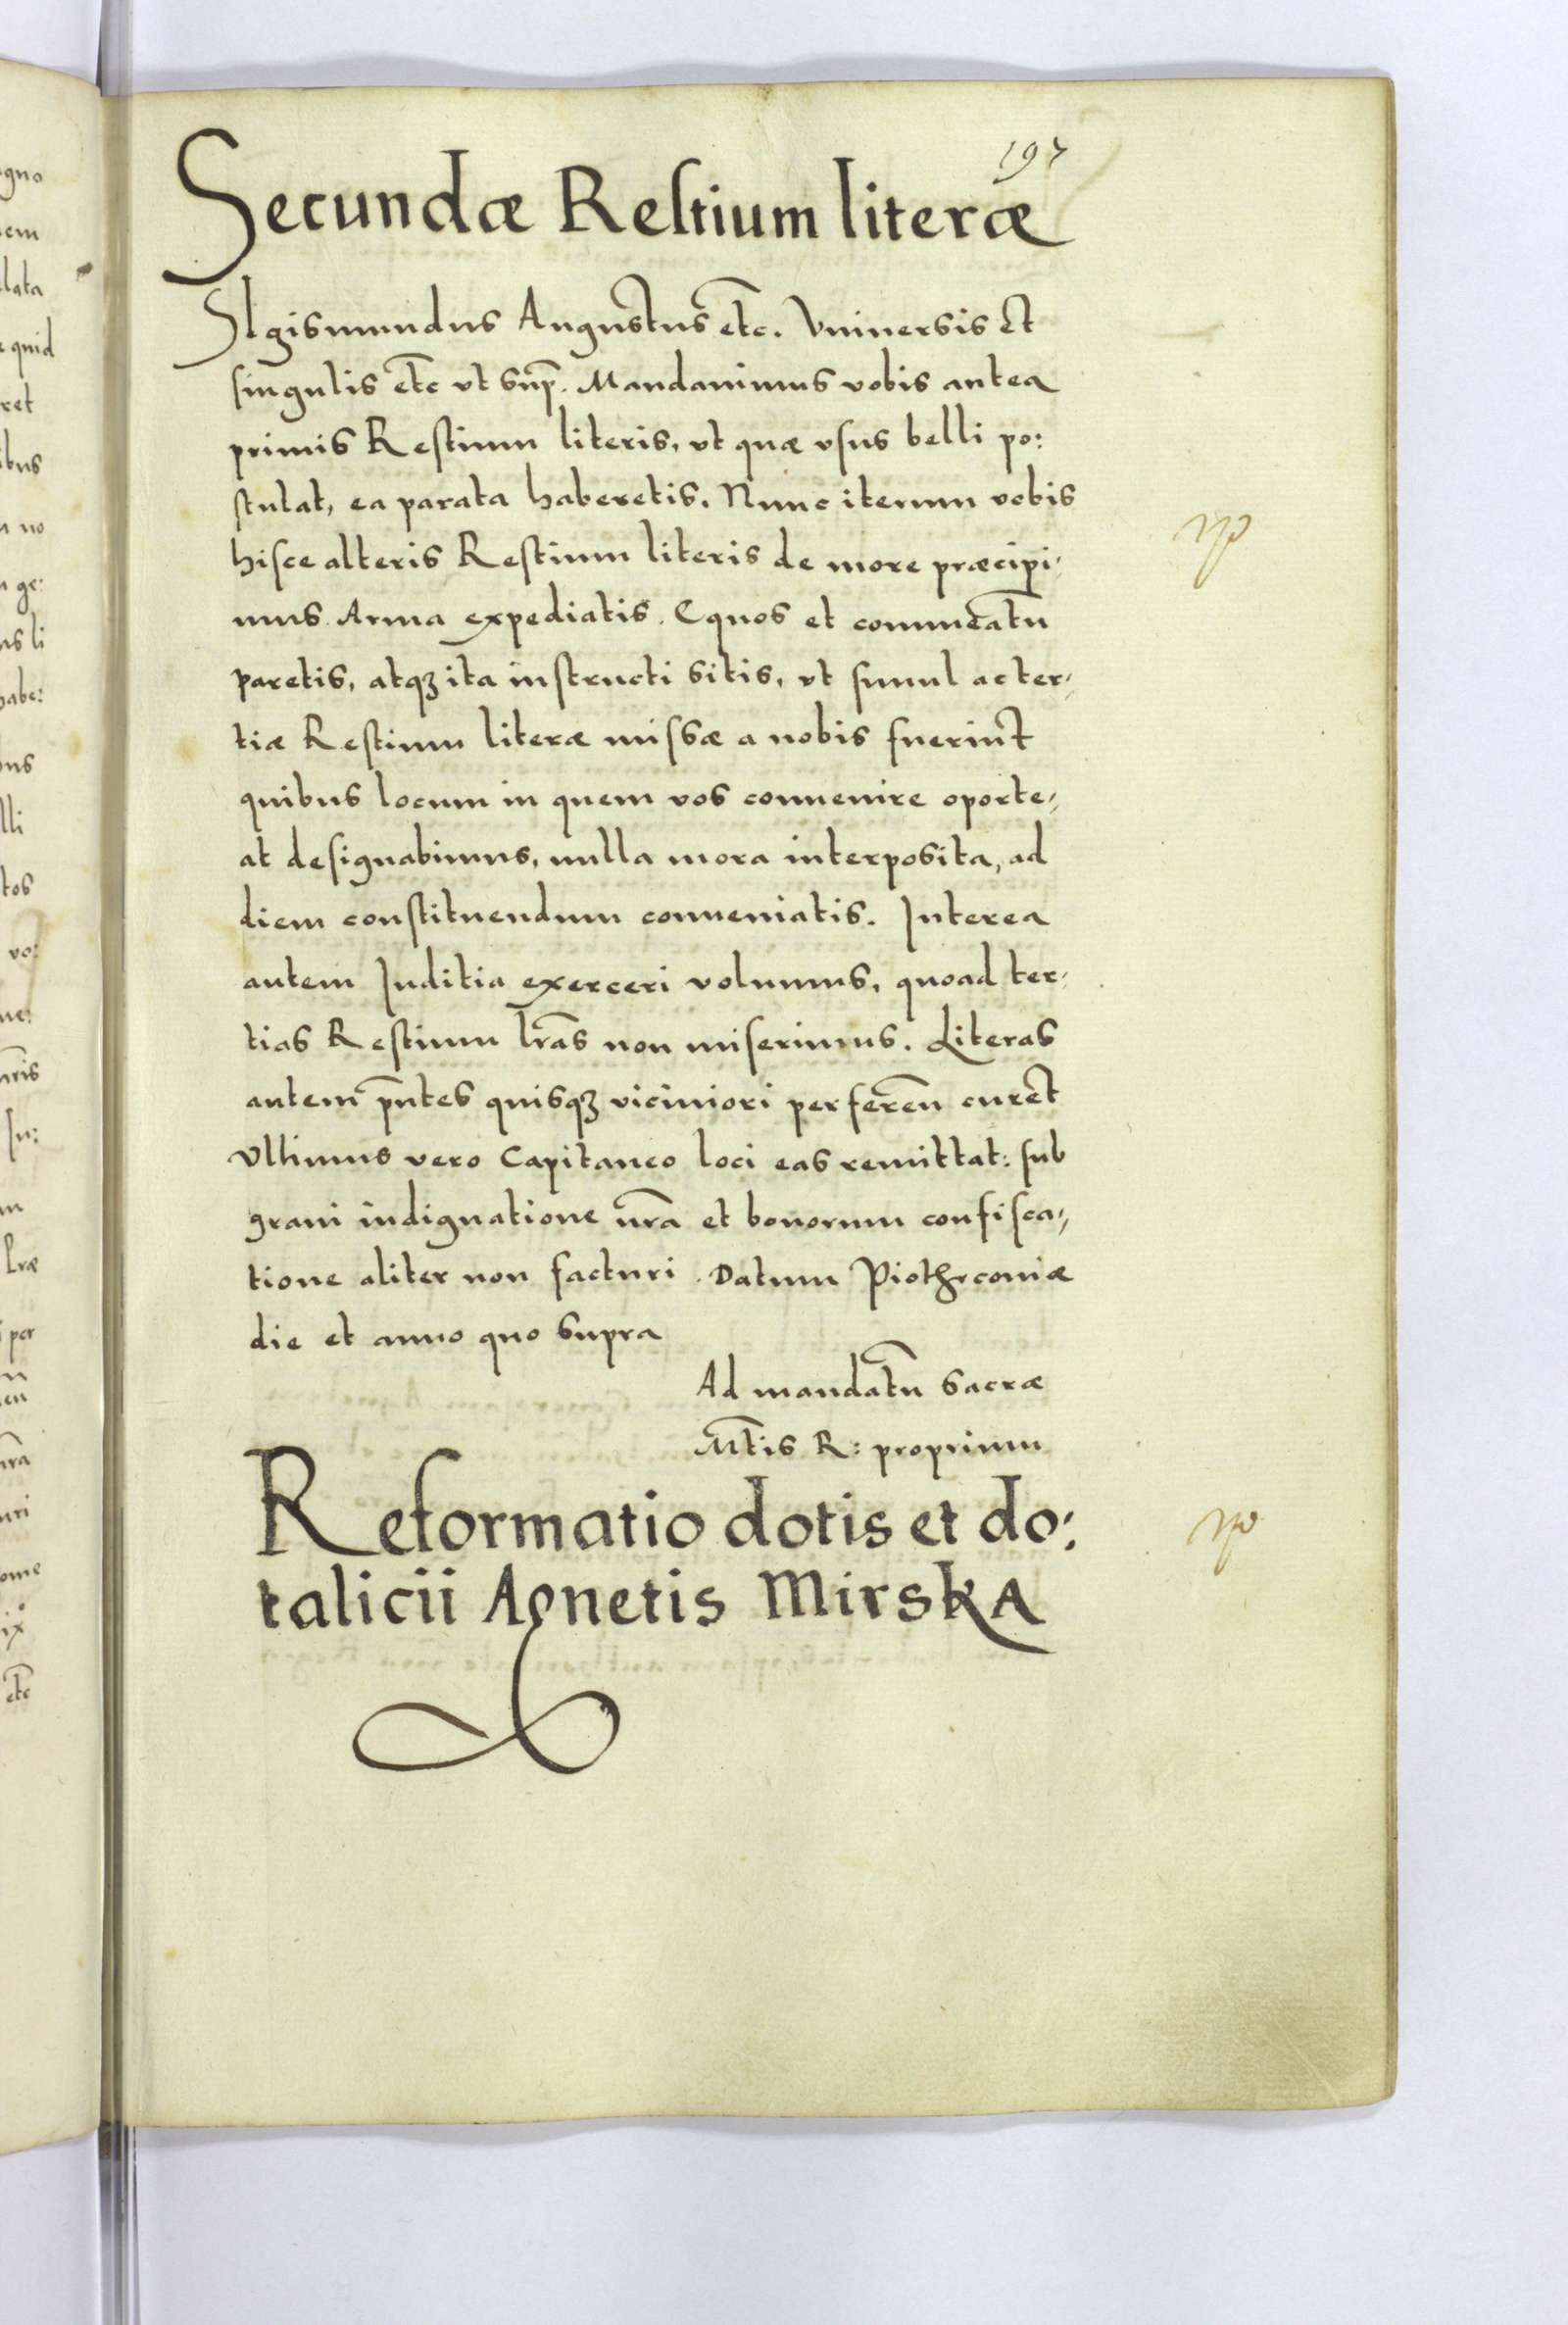 197
Secundæ Restium literæ
SIgismundus Augustus etc. Vniuersis et
singulis etc vt sup. Mandauimus vobis antea
primis Restium literis, vt quæ vsus belli po:
stulat, ea parata haberetis. Nunc iterum vobis
hisce alteris Restium literis de more præcipi,
mus Arma expediatis. Equos et commeatu
paretis, atqꝫ ita instructi sitis, vt simul ac ter,
tiæ Restium literæ missæ a nobis fuerint
quibus locum in quem vos conuenire oporte,
at designabimus, nulla mora interposita, ad
diem constituendum conueniatis. Interea
autem Juditia exerceri volumus, quoad ter,
tias Restium lr̃as non miserimus. Literas
autem pñtes quisqꝫ viciniori perferen curet
Vltimus vero Capitaneo loci eas remittat: sub
graui indignatione nr̃a et bonorum confisca,
tione aliter non facturi. Datum Piothrconiæ
die et anno quo supra
Ad mandatu sacræ
Mtis R: proprium
Reformatio dotis et do:
talicii Agnetis Mirska